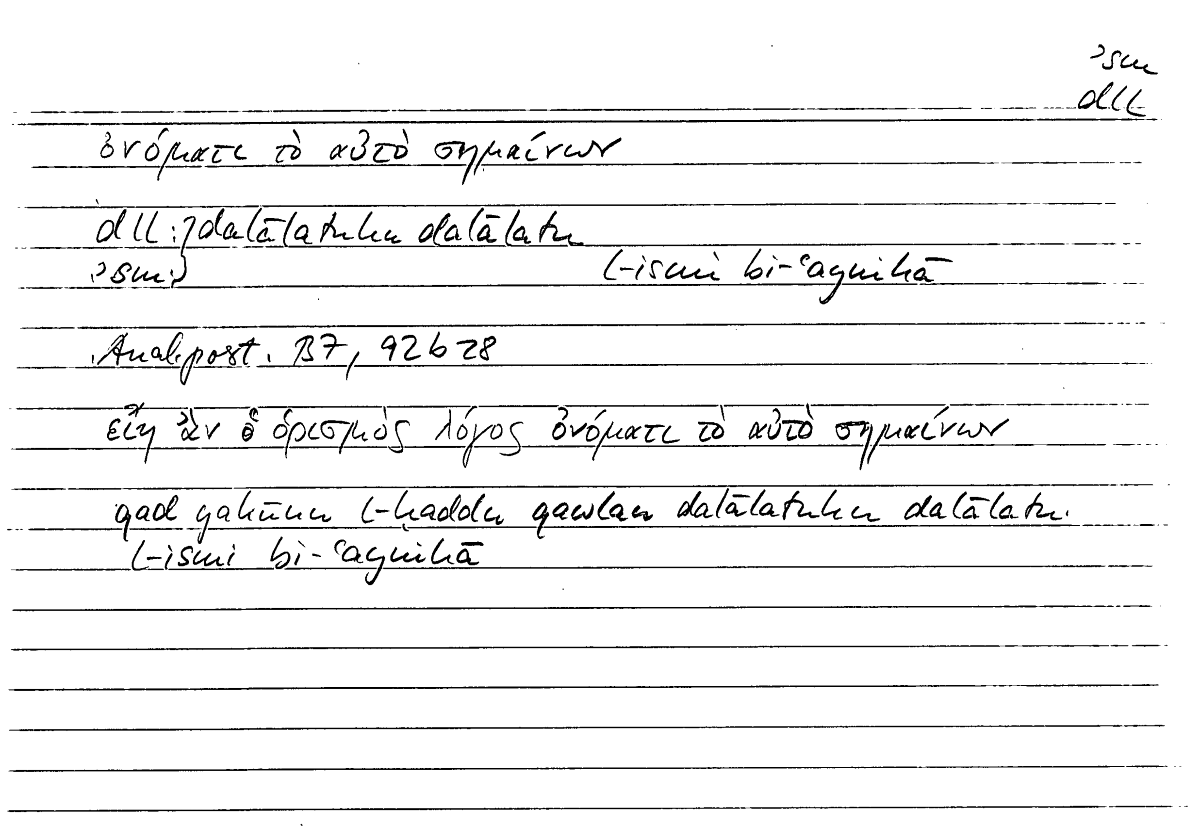 ʾsm
dll
ὀνόματι τὸ αὐτὸ σημαίνων
dll: dalālatuhu dalālatu
ʾsm: l-ismi bi-ʿaynihā
Anal. post. B7, 92b28
εἴη ἂν ὁ ὁρισμὸς λόγος ὀνόματι τὸ αὐτὸ σημαίνων
qad yakūnu l-ḥaddu qawlan dalālatuhu dalālatu
l-ismi bi-ʿaynihā